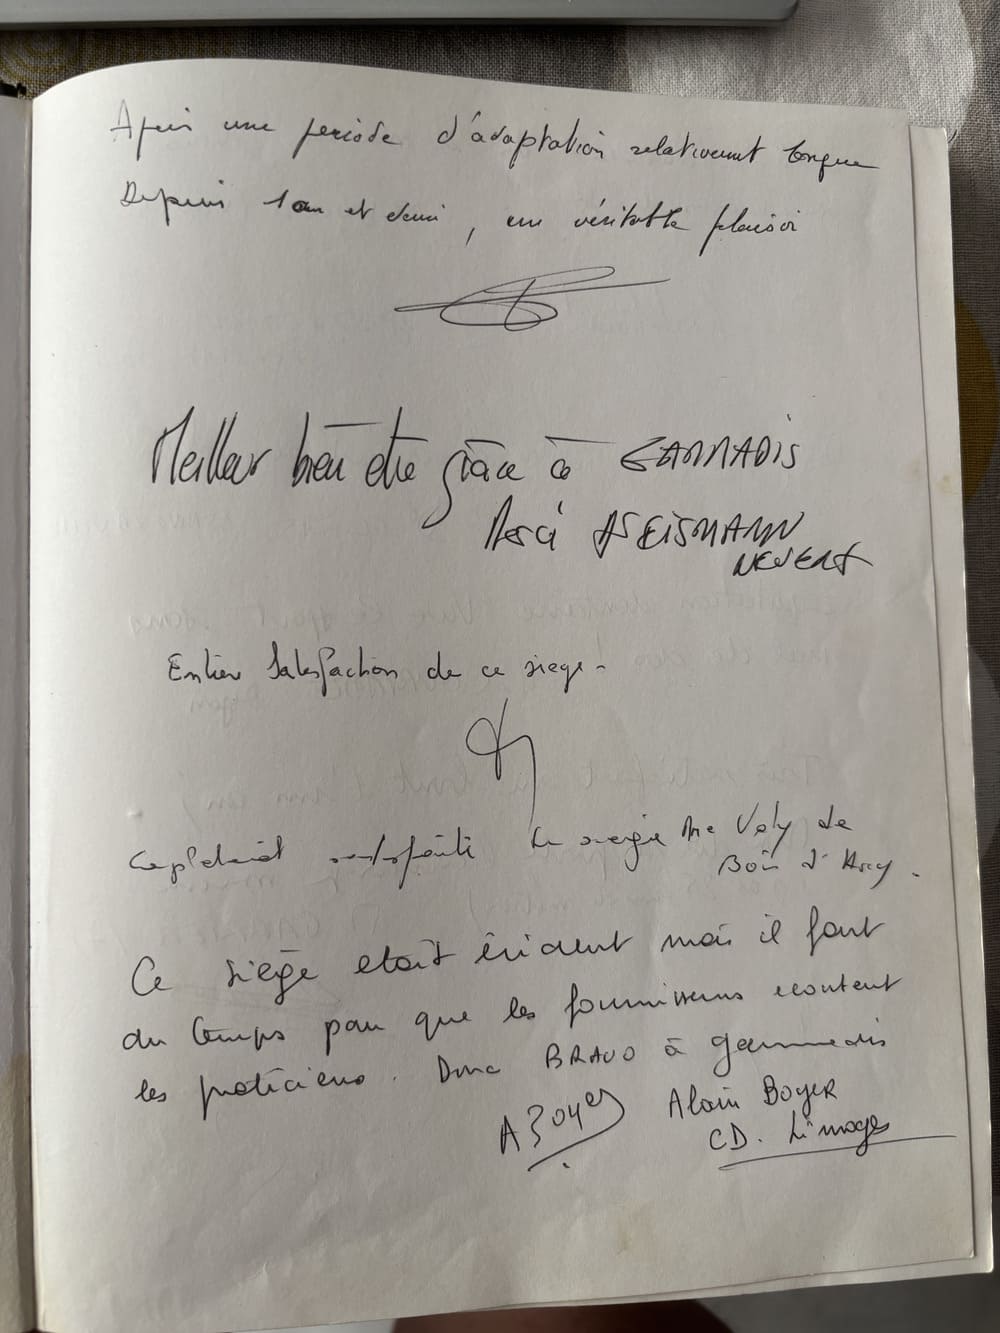 Après une periode d'adaptation relativement longue
Depuis 1 an et demi, un véritable plaisir
Meilleur bien être grâce à GAMMADIS
Merci
NEVERS
Entière Satisfaction de ce siege.
de
Bois d'Arcy.
Ce siège etait évident mais il faut
du temps pour que les fournisseurs ecoutent
les praticiens. Donc BRAVO à gammadis
A Boyer Alain BOYER
CD. Limoges